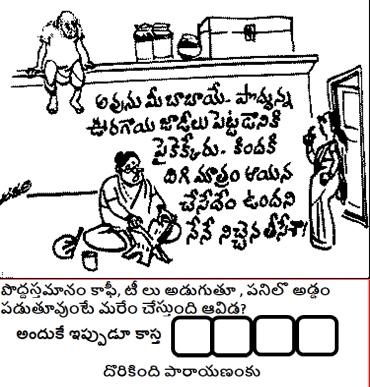 అవును మీ బాబాయే. పొద్దున్న
ఊరగాయ జాడీలు పెట్టడానికి
పైకెక్కేరు. కిందకి
దిగి మాత్రం ఆయన
చేసేదేం ఉందని
నేనే నిచ్చెన తీసేశా!
పొద్దస్తమానం కాఫీ, టీ లు అడుగుతూ, పనిలొ అడ్డం
పడుతూవుంటే మరేం చేస్తుంది ఆవిడ?
అందుకే ఇప్పుడూ కాస్త
దొరికింది పారాయణంకు